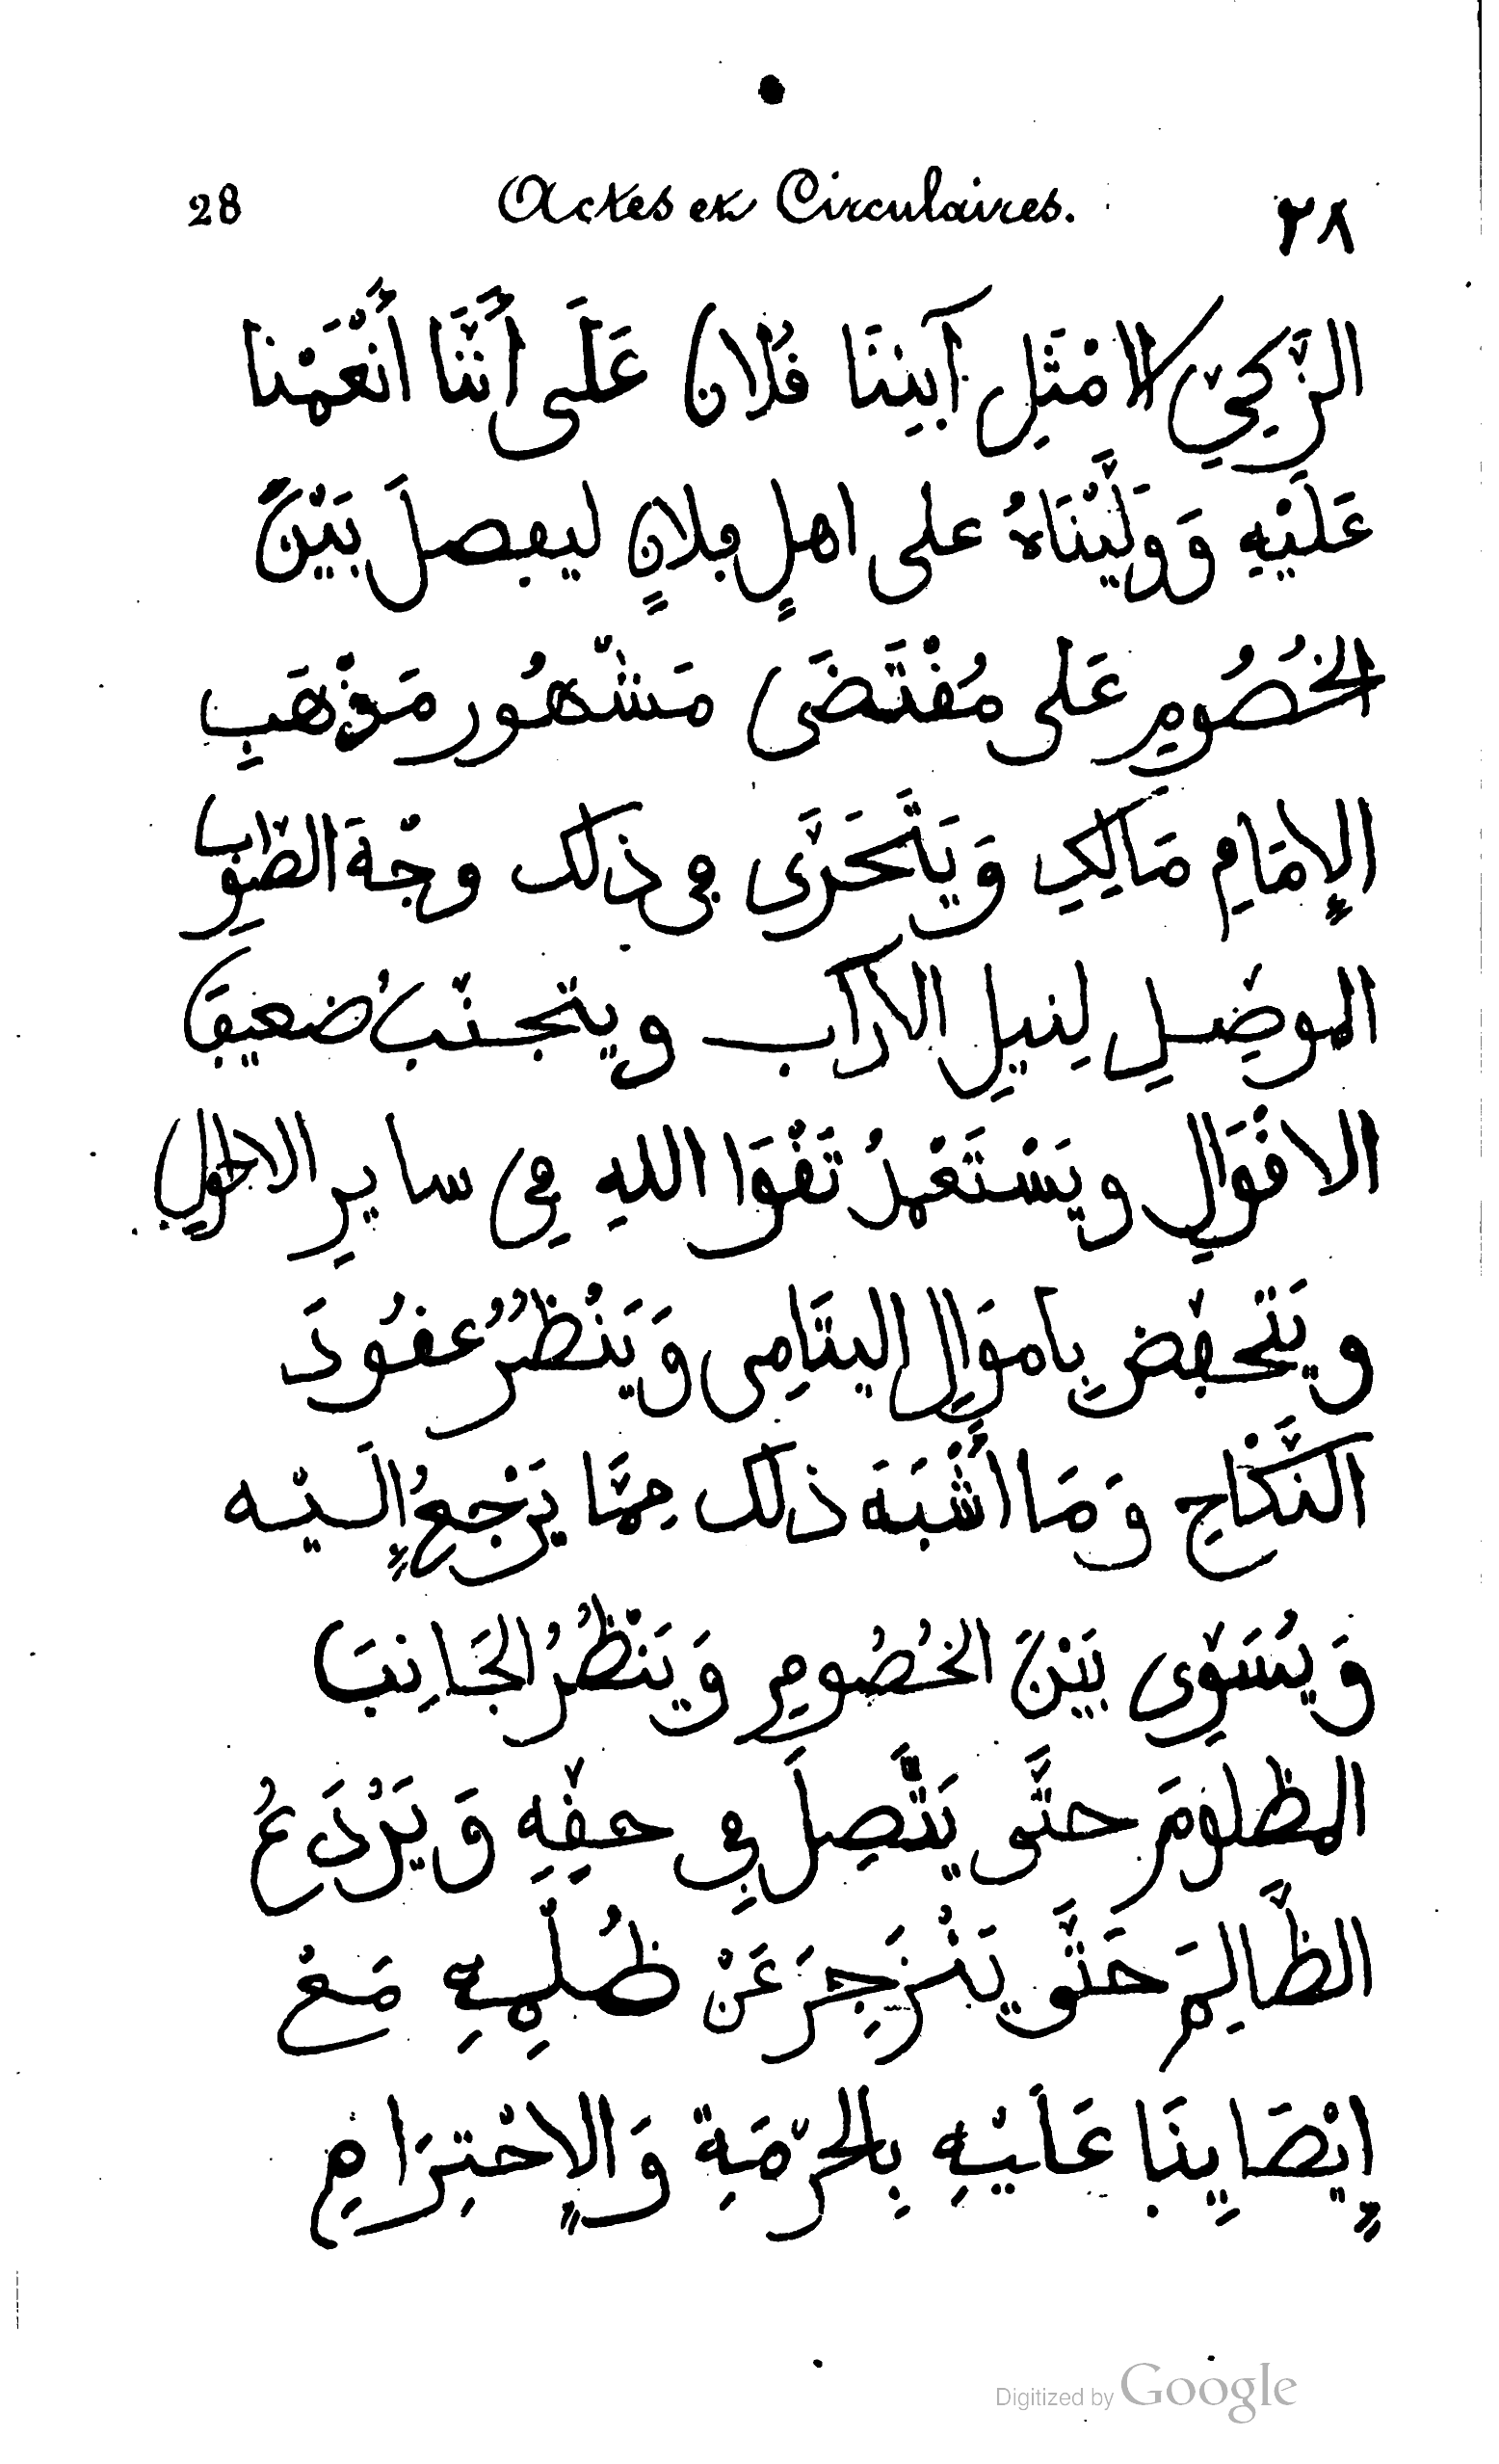 28 Actes et Circulaires. ٢٨
الزَّكِيّ الامْثَلِ آبِينَا فُلَان عَلَى أنَّنَا أَنْعَمْنَا
عَلَيْهِ وَوَلَّيْنَاهُ على اهلِ فلانٍ ليفصلَ بَيْنَ
الخُصُومِ عَلى مُقْتَضَى مَشْهُور مَذْهَبِ
الإمَامِ مَالِكِ وَيَتَحَرَّى في ذلك وجْهَ الصّوَاب
الموصّلِ لِنيلِ الارَاب ويتجنّبُ ضعيفَ
الاقْوَالِ ويَسْتَعْمِلُ تَقْوَا اللهِ فِي سايرِ الاحوالِ
ويَتَحفّض بِاموَالِ اليتَامِى وَيَنْظُرُ عقُودَ
النّكَاحِ وَمَا أشْبَهَ ذلك مِمَّا يَرْجِعُ إلَيْه
وَيُسَوِّى بَيْنَ الخُصُومِ وَيَنْظُرُ الجَانِبَ
المظلومَ حتَّى يَتَّصِلَ فِي حقِّهِ وَيَرْدَعُ
الظَّالِمَ حَتَّى يَنْزَجِرَ عَنْ ظُلْمِهِ مَعْ
إيْصَايِنَا عَلَيْهِ بِالحُرْمَةِ وَالإحْتِرَامِ
Digitized by Google